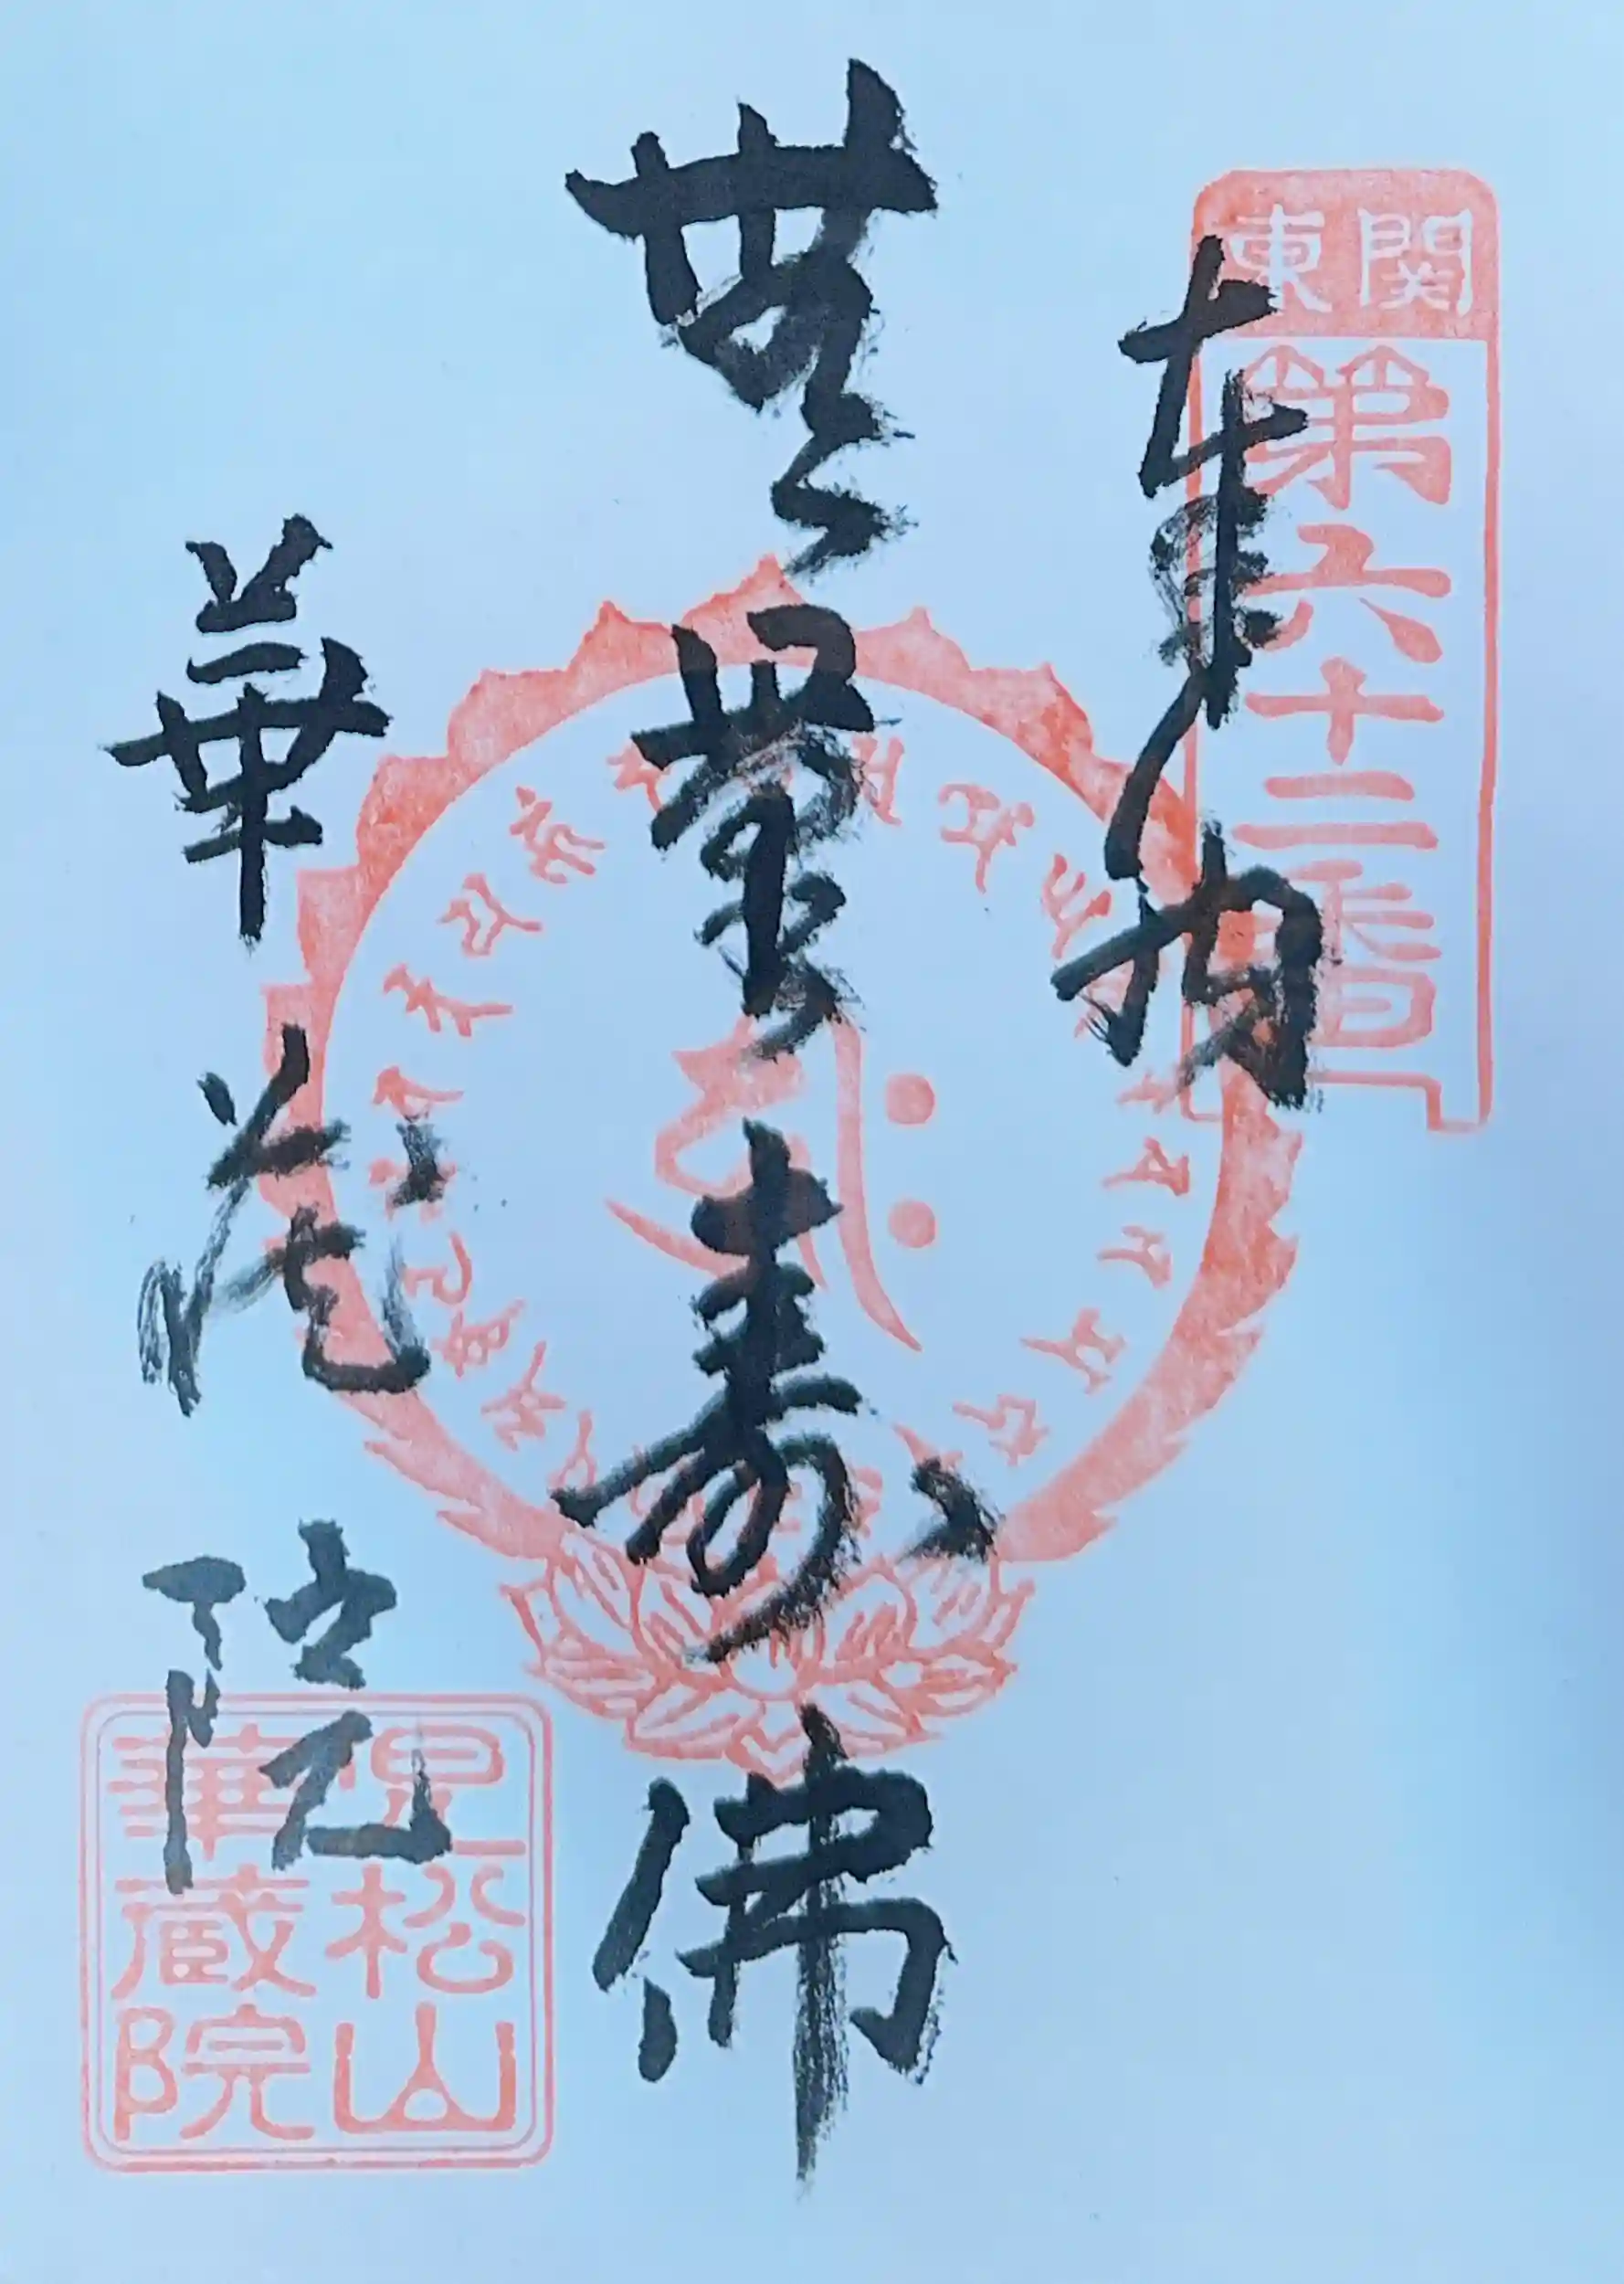 関東
第六十二番
奉拝
無量壽佛
華蔵院
松山
華蔵院